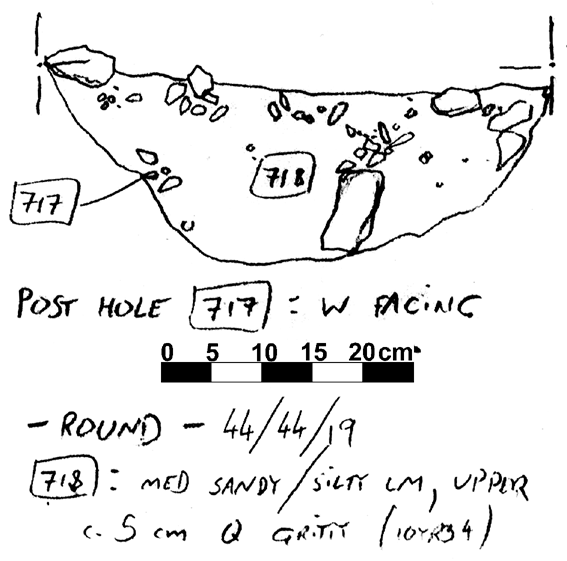 718
717
POST HOLE 717 : W FACING
0 5 10 15 20 cm
- ROUND - 44/44/19
718 : MED SANDY/SILTY LM, UPPER
c. 5 cm Q GRITTY (10YR34)